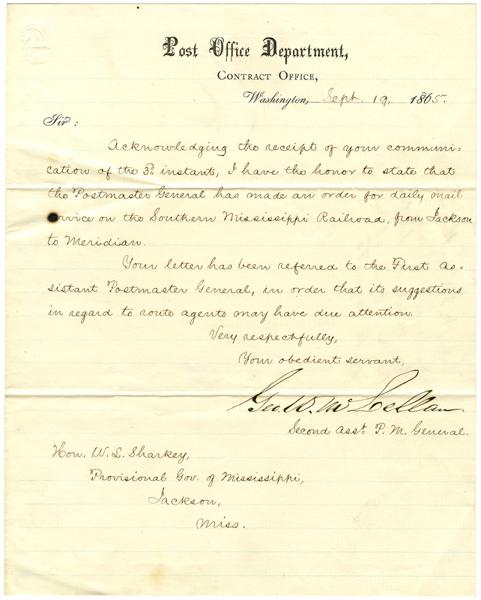 Post Office Department,
Contract Office,
Washington, Sept. 19, 1865.
Sir:
Acknowledging the receipt of your communi-
cation of the 3d instant, I have the honor to state that
the Postmaster General has made an order for daily mail
rvice on the Southern Mississippi Railroad, from Jackson
to Meridian.
Your letter has been referred to the First as-
sistant Postmaster General, in order that its suggestions
in regard to route agents may have due attention.
Very respectfully,
Your obedient servant,
Geo. W. McLellan
Second Asst. P. M. General.
Hon. W. L. Sharkey,
Provisional Gov. of Mississippi,
Jackson,
Miss.